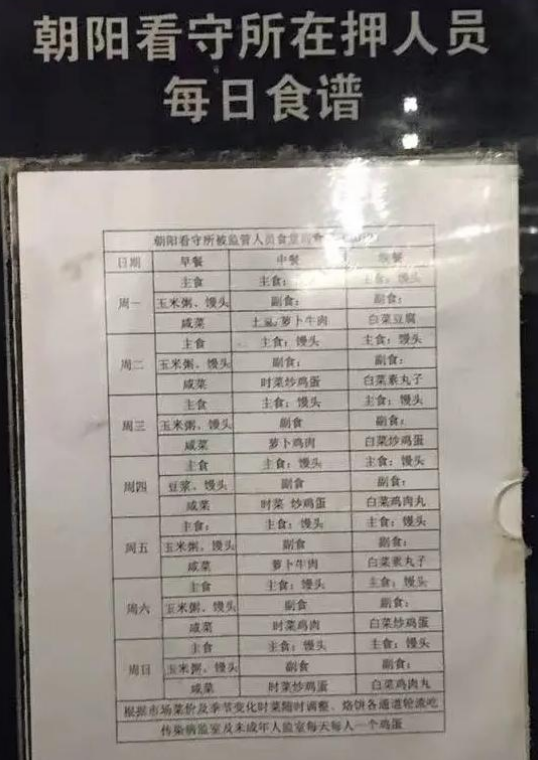 朝阳看守所在押人员
每日食谱
朝阳看守所被监管人员食堂
日期 早餐 中餐 晚餐
主食 主食: 主食：馒头
周一 玉米粥、馒头 副食： 副食：
咸菜 土豆/萝卜牛肉 白菜豆腐
主食 主食：馒头 主食：馒头
周二 玉米粥、馒头 副食： 副食：
咸菜 时菜炒鸡蛋 白菜素丸子
主食 主食：馒头 主食：馒头
周三 玉米粥、馒头 副食 副食：
咸菜 萝卜鸡肉 白菜炒鸡蛋
主食 主食：馒头 主食：馒头
周四 豆浆、馒头 副食 副食：
咸菜 时菜 炒鸡蛋 白菜鸡肉丸
主食： 主食：馒头 主食：馒头
周五 玉米粥、馒头 副食 副食：
咸菜 萝卜牛肉 白菜素丸子
主食 主食：馒头 主食：馒头
周六 玉米粥、馒头 副食 副食：
咸菜 时菜鸡肉 白菜炒鸡蛋
主食 主食：馒头 主食：馒头
周日 玉米粥、馒头 副食 副食：
咸菜 时菜炒鸡蛋 白菜鸡肉丸
根据市场菜价及季节变化时菜随时调整、烙饼各通道轮流吃
传染病监室及未成年人监室每天每人一个鸡蛋